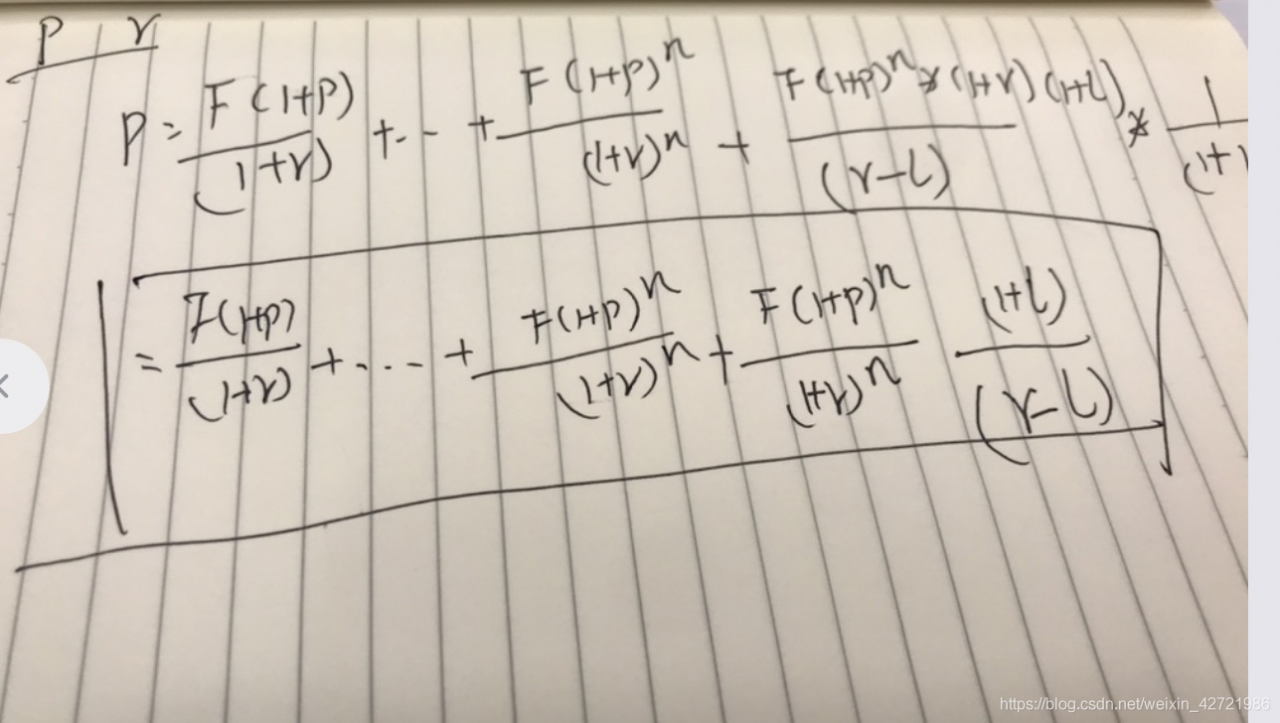 P r
P = F(1+P)/(1+r) + ... + F(1+P)^n/(1+r)^n + F(1+P)^n * (1+r)(1+l)/(r-l) * 1/(1+
= F(1+P)/(1+r) + .... + F(1+P)^n/(1+r)^n + F(1+P)^n/(1+r)^n (1+l)/(r-l)
https://blog.csdn.net/weixin_42721986